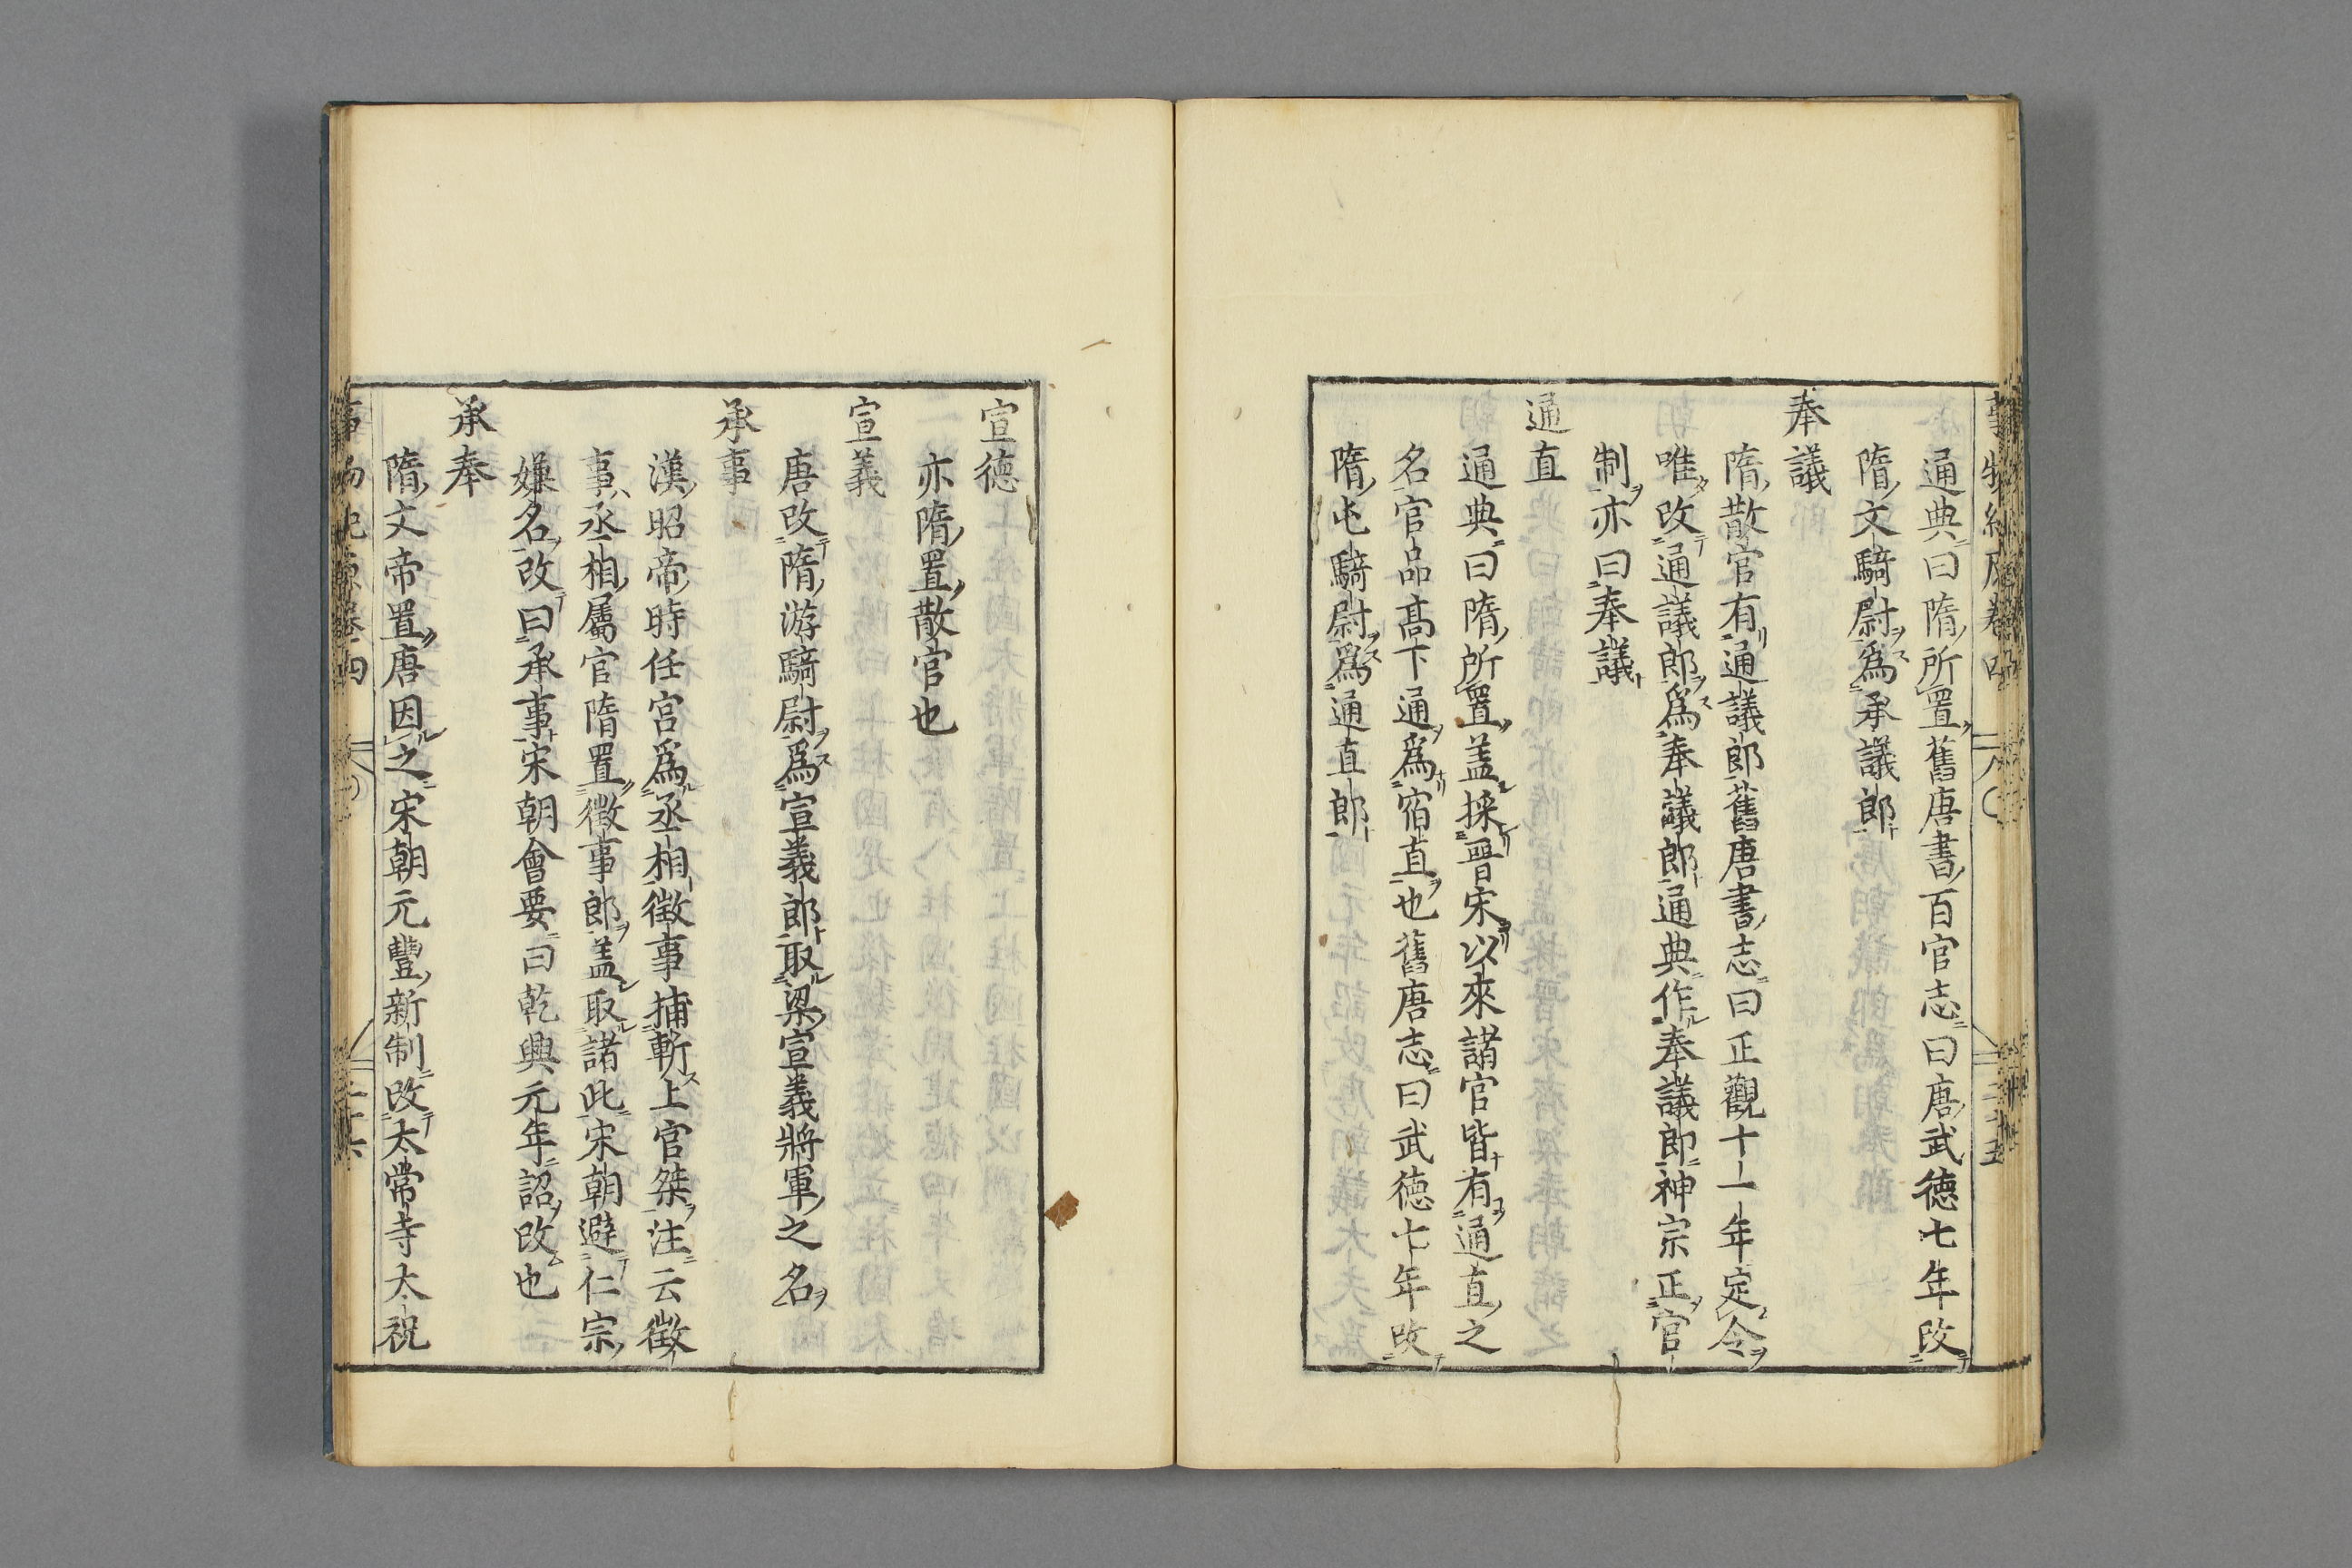 通典曰隋所置舊唐書百官志曰唐武徳七年改
隋文騎尉爲承議郎
奉議
隋散官有通議郎舊唐書志曰正觀十一年定令
唯改通議郎爲奉議郎通典作奉議郎神宗正官
制亦曰奉議
通直
通典曰隋所置盖採晋宋以來諸官皆有通直之
名官品髙下通爲宿直也舊唐志曰武徳七年改
隋屯騎尉爲通直郎
宣徳
亦隋置散官也
宣義
唐改隋游騎尉爲宣義郎取梁宣義將軍之名
承事
漢昭帝時任宮爲丞相徵事捕斬上官桀注云徵
事丞相屬官隋置徵事郎盖取諸此宋朝避仁宗
嫌名改曰承事宋朝會要曰乾興元年詔改也
承奉
隋文帝置唐因之宋朝元豐新制改太常寺太祝